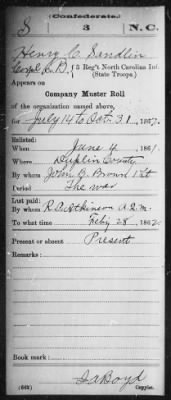 Confederate.
S 3 N.C.
Henry C. Sandlin
Corpl Co. B, 3 Reg't North Carolina Inf.
(State Troops.)
Appears on
Company Muster Roll
of the organization named above,
for July 14 to Oct 31, 1867.
Enlisted:
When June 4, 1861.
Where Duplin County
By whom John B. Brown 1 Lt
Period The war
Last paid:
By whom R. A. Atkinson A.Q.M.
To what time Feby 28, 1862.
Present or absent Present
Remarks:
Book mark:
Boyd
(642) Copyist.